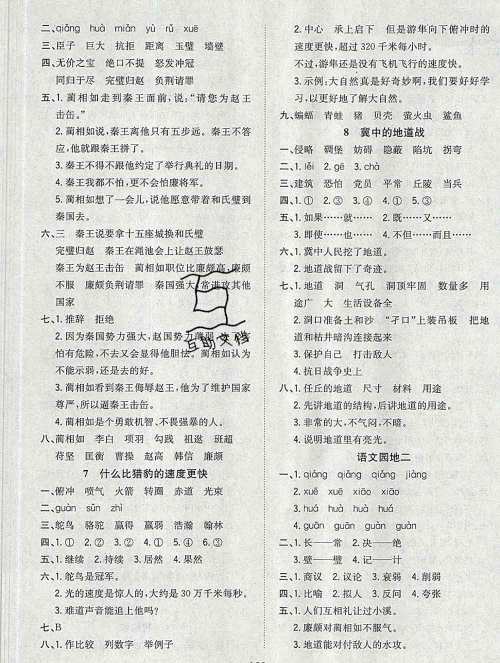 二、qiǎng huá miǎn yù rǔ xuē
三、臣子 巨大 抗拒 距离 玉璧 墙壁
四、无价之宝 绝口不提 怒发冲冠
同归于尽 完璧归赵 负荆请罪
五、1. 蔺相如走到秦王面前,说:“请您为赵王
击缶。”
2. 蔺相如说,秦王离他只有五步远。秦王不答
应,他就跟秦王拼了。
3. 秦王不得不跟他约定了举行典礼的日期。
4. 秦王我都不怕,更不会怕廉将军。
5. 蔺相如想了一会儿,说他愿意带着和氏璧到
秦国去。
六、三 秦王说要拿十五座城换和氏璧
完璧归赵 秦王在渑池会上让赵王鼓瑟
秦王为赵王击缶 蔺相如职位比廉颇高,廉颇
不服 廉颇负荆请罪 秦国强大,常进攻其他
国家
七、1. 推辞 拒绝
2. 因为秦国势力强大,赵国势力
怕有危险,不去又会显得他胆怯。蔺相如认为
不能示弱,还是去的好。
3. 蔺相如看到秦王侮辱赵王,他为了维护国家
尊严,所以逼秦王击缶。
4. 蔺相如是个勇敢机智、不畏强暴的人。
八、蔺相如 李白 项羽 勾践 祖逖 班超
荷坚 匡衡 曹操 赵高 韩信 廉颇
7 什么比猎豹的速度更快
一、俯冲 喷气 火箭 转圈 赤道 光束
二、guàn sǔn zhì
三、鸵鸟 骆驼 赢得 赢弱 浩瀚 翰林
四、1. ① 2. ② 3. ④ 4. ③ 5. ④ 6. ①
五、1. 继续 2. 持续 3. 居然 4. 果然
六、1. 鸵鸟是冠军。
2. 光的速度是惊人的,大约是30万千米每秒。
3. 难道声音能追上他吗?
七、B
八、1. 作比较 列数字 举例子
2. 中心 承上启下 但是游隼向下俯冲时的
速度更快,超过320千米每小时。
不过,游隼还是没有飞机飞行的速度快。
3. 示例:大自然真是好奇妙啊,我们要好好学
习,以更好地了解大自然。
九、蝙蝠 青蛙 猪 贝壳 萤火虫 鲨鱼
8 冀中的地道战
一、侵略 碉堡 妨碍 隐蔽 陷坑 拐弯
二、1. lěi 2. gē 3. chà
三、建筑 恐怕 党员 平常 丘陵 当兵
四、1. ③ 2. ① 3. ①
五、1. 如果……就…… 2. 既……又……
3. 即使……也…… 4. 不但……而且……
六、1. 冀中人民挖了地道。
2. 地道战留下了奇迹。
七、1. 地道 洞 气孔 洞顶牢固 数量多 用
途广 大 生活设备全
2. 洞口准备土和沙 “孑口”上装吊板 把地
道和枯井暗沟连接起来
3. 保护自己 打击敌人
4. 抗日战争史上
八、1. 任丘的地道 尺寸 材料 用途
2. 先讲地道的结构,后讲地道的用途。
3. 非常的大,不气闷的很。
4. 说明地道里有亮光。
语文园地二
一、1. qiáng qiǎng qiǎng jiàng
2. xuě xuē xiāo xiāo
3. huá huá huá huà
4. guān guān guān guàn
二、1. 长——常 2. 决——绝
3. 壁——璧 4. 记——计
三、1. 商议 2. 议论 3. 衰弱 4. 削弱
四、1. 比喻 2. 拟人 3. 反问 4. 夸张
五、1. 人们互相礼让过小溪。
2. 廉颇对蔺相如很不服气。
3. 地道能对付敌人。
互助文档